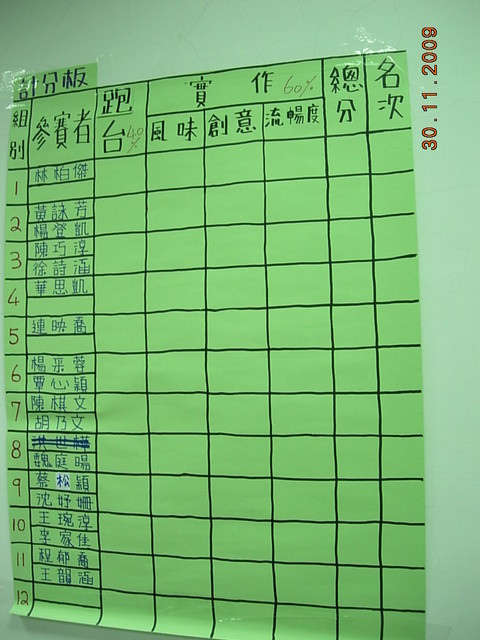 計分板
組別 參賽者 跑台40% 實作60% 總分 名次
風味 創意 流暢度
1 林柏傑
2 黃詠芳
楊登凱
3 陳巧淳
徐詩涵
4 華思凱
5 連映喬
6 楊采蓉
覃心穎
7 陳棋文
胡乃文
8 洪世樺
魏庭暘
9 蔡松穎
沈妤姍
10 王琬淳
李家佳
11 程郁喬
王韻涵
12
30.11.2009